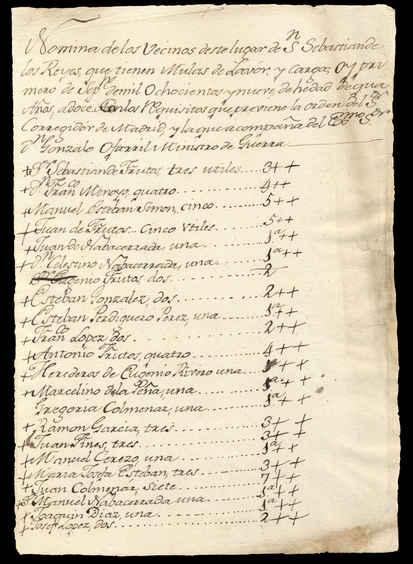 Nomina de los Vecinos deste lugar de Sn Sebastian de
los Reyes, que tienen Mulas de Lavor, y carga, oy pri
mero de Sepe de mil Ochocientos y nueve, de hedad de qua
Años, a doce con los Requisitos que previene la orden del Sr
Corregidor de Madrid, y la que acompaña del Exmo Sr
Dn Gonzalo Ofarril Ministro de Guerra
+ Dn Sebastian de Frutos tres utiles .... 3 + +
+ Dn Franco Monoyo, quatro ........ 4 + +
+ Manuel Esteban Simon, cinco ...... 5 + +
+ Juan de Frutos .. Cinco Vtiles ...... 5 +
+ Juan de Nabacerrada, una ........ 1a + +
+ Dn Celestino Nabacerrada, una ...... 1a + +
Eugenio Frutos dos ............ 2
+ Esteban Gonzalez, dos ............ 2 + +
+ Esteban Perdiguero Perez, una .... 1a + +
+ Franco Lopez, dos ............ 2 + +
+ Antonio Frutos, quatro ............ 4 + + +
+ Herederos de Eugenio Rivero una .. 1a + +
+ Marcelino de la Peña, una ........ 1a + +
Gregoria Colmenar, una ........ 1a + +
+ Ramon Garcia, tres ............ 3 + +
+ Juan Fines, tres ............ 3 + +
+ Manuel Cerezo, una ............ 1a + +
+ Maria Josefa Esteban, tres ........ 3 + +
+ Juan Colmenar, Siete ............ 7 + +
+ Manuel Nabacerrada una ........ 1a + +
+ Joaquin Diaz, una ............ 1a + +
+ Josef Lopez, dos ............ 2 + +